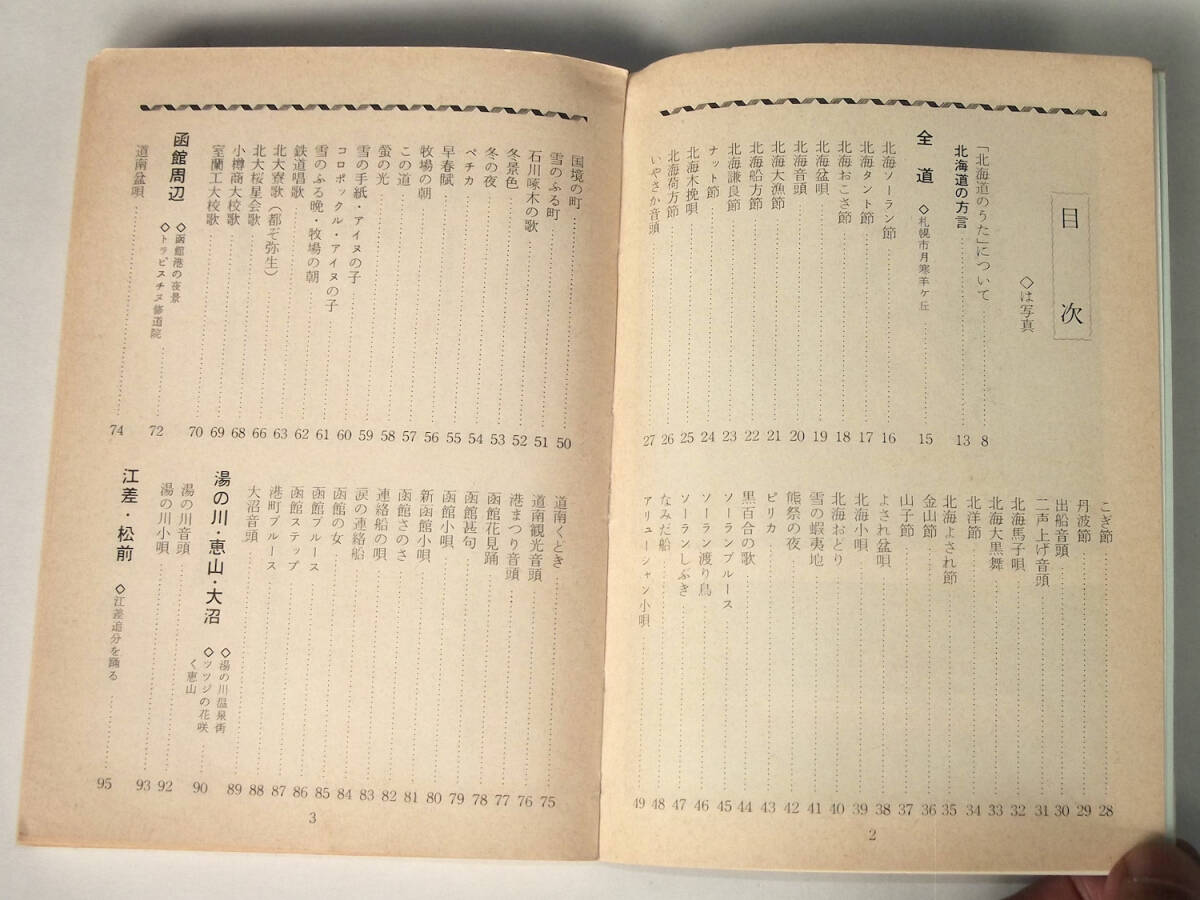 目次
◇は写真
「北海道のうた」について……8
北海道の方言……13
全道 ◇札幌市月寒羊ケ丘……15
北海ソーラン節……16
北海タント節……17
北海おこさ節……18
北海盆唄……19
北海音頭……20
北海大漁節……21
北海船方節……22
北海謙良節……23
ナット節……24
北海木挽唄……25
北海荷方節……26
いやさか音頭……27
こぎ節……28
丹波節……29
出船音頭……30
二声上げ音頭……31
北海馬子唄……32
北海大黒舞……33
北洋節……34
北海よされ節……35
金山節……36
山子節……37
よされ盆唄……38
北海小唄……39
北海おどり……40
雪の蝦夷地……41
熊祭の夜……42
ピリカ……43
黒百合の歌……44
ソーランブルース……45
ソーラン渡り鳥……46
ソーランしぶき……47
なみだ船……48
アリューシャン小唄……49
2
国境の町……50
雪のふる町……51
石川啄木の歌……52
冬景色……53
冬の夜……54
ペチカ……55
早春賦……56
牧場の朝……57
この道……58
螢の光……59
雪の手紙・アイヌの子……60
コロポックル・アイヌの子……61
雪のふる晩・牧場の朝……62
鉄道唱歌……63
北大寮歌（都ぞ弥生）……66
北大桜星会歌……68
小樽商大校歌……69
室蘭工大校歌……70
函館周辺 ◇函館港の夜景
◇トラピスチヌ修道院……72
道南盆唄……74
道南くどき……75
道南観光音頭……76
港まつり音頭……77
函館花見踊……78
函館甚句……79
函館小唄……80
新函館小唄……81
函館さのさ……82
連絡船の唄……83
涙の連絡船……84
函館の女……85
函館ブルース……86
函館ステップ……87
港町ブルース……88
大沼音頭……89
湯の川・恵山・大沼 ◇湯の川温泉街
◇ツツジの花咲
く恵山……90
湯の川音頭……92
湯の川小唄……93
江差・松前 ◇江差追分を踊る……95
3